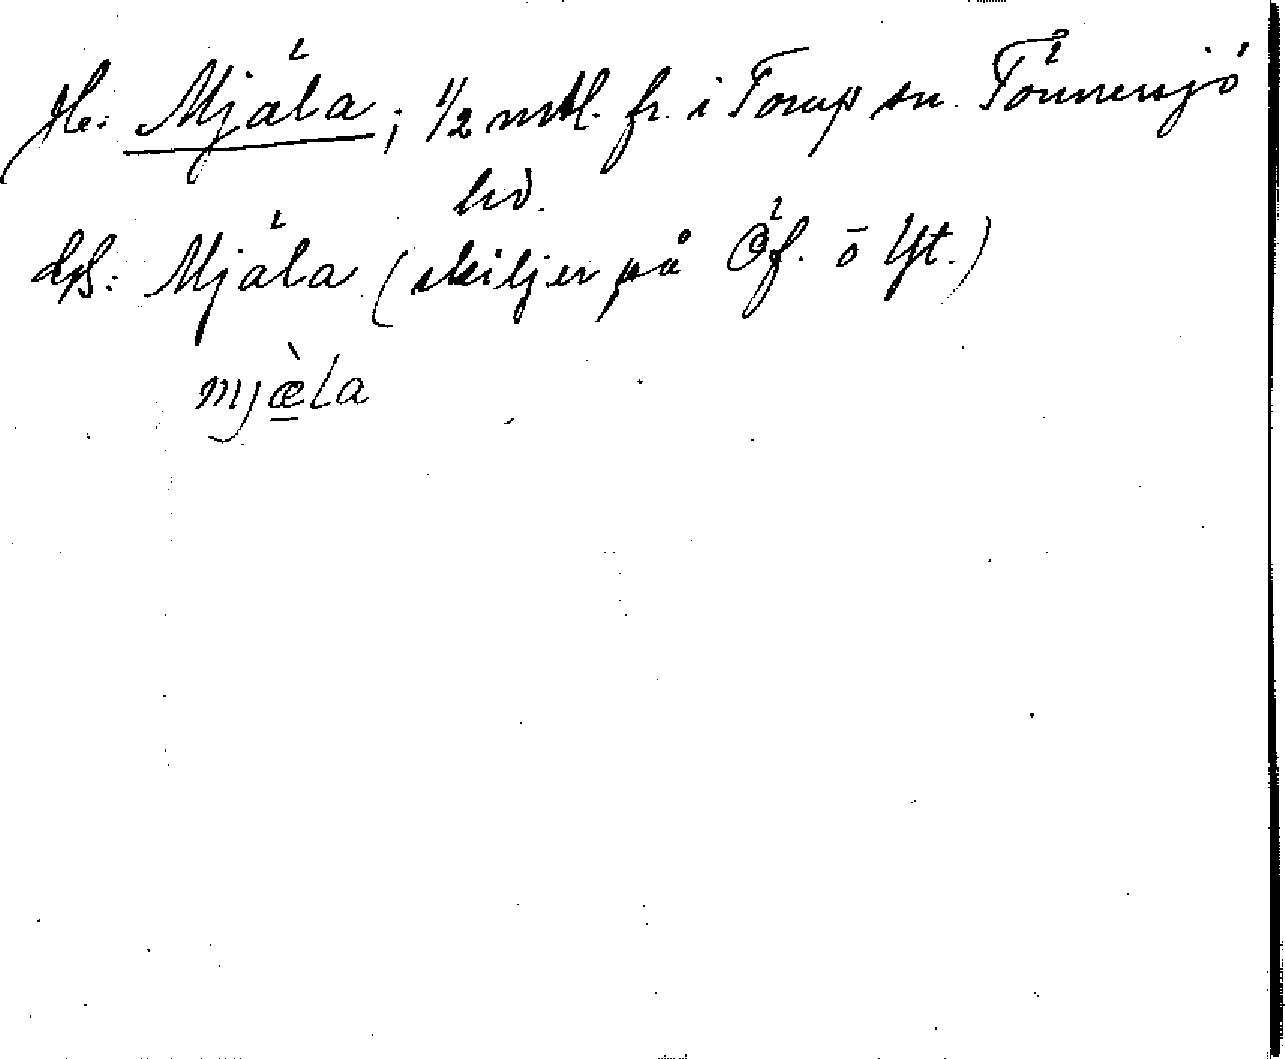 Jb: Mjäla; 1/2 mtl. fr. i Torup sn. Tönnersjö
hd.
Mjäla (skiljer på Öf. o Yt.)
mjæ̀la